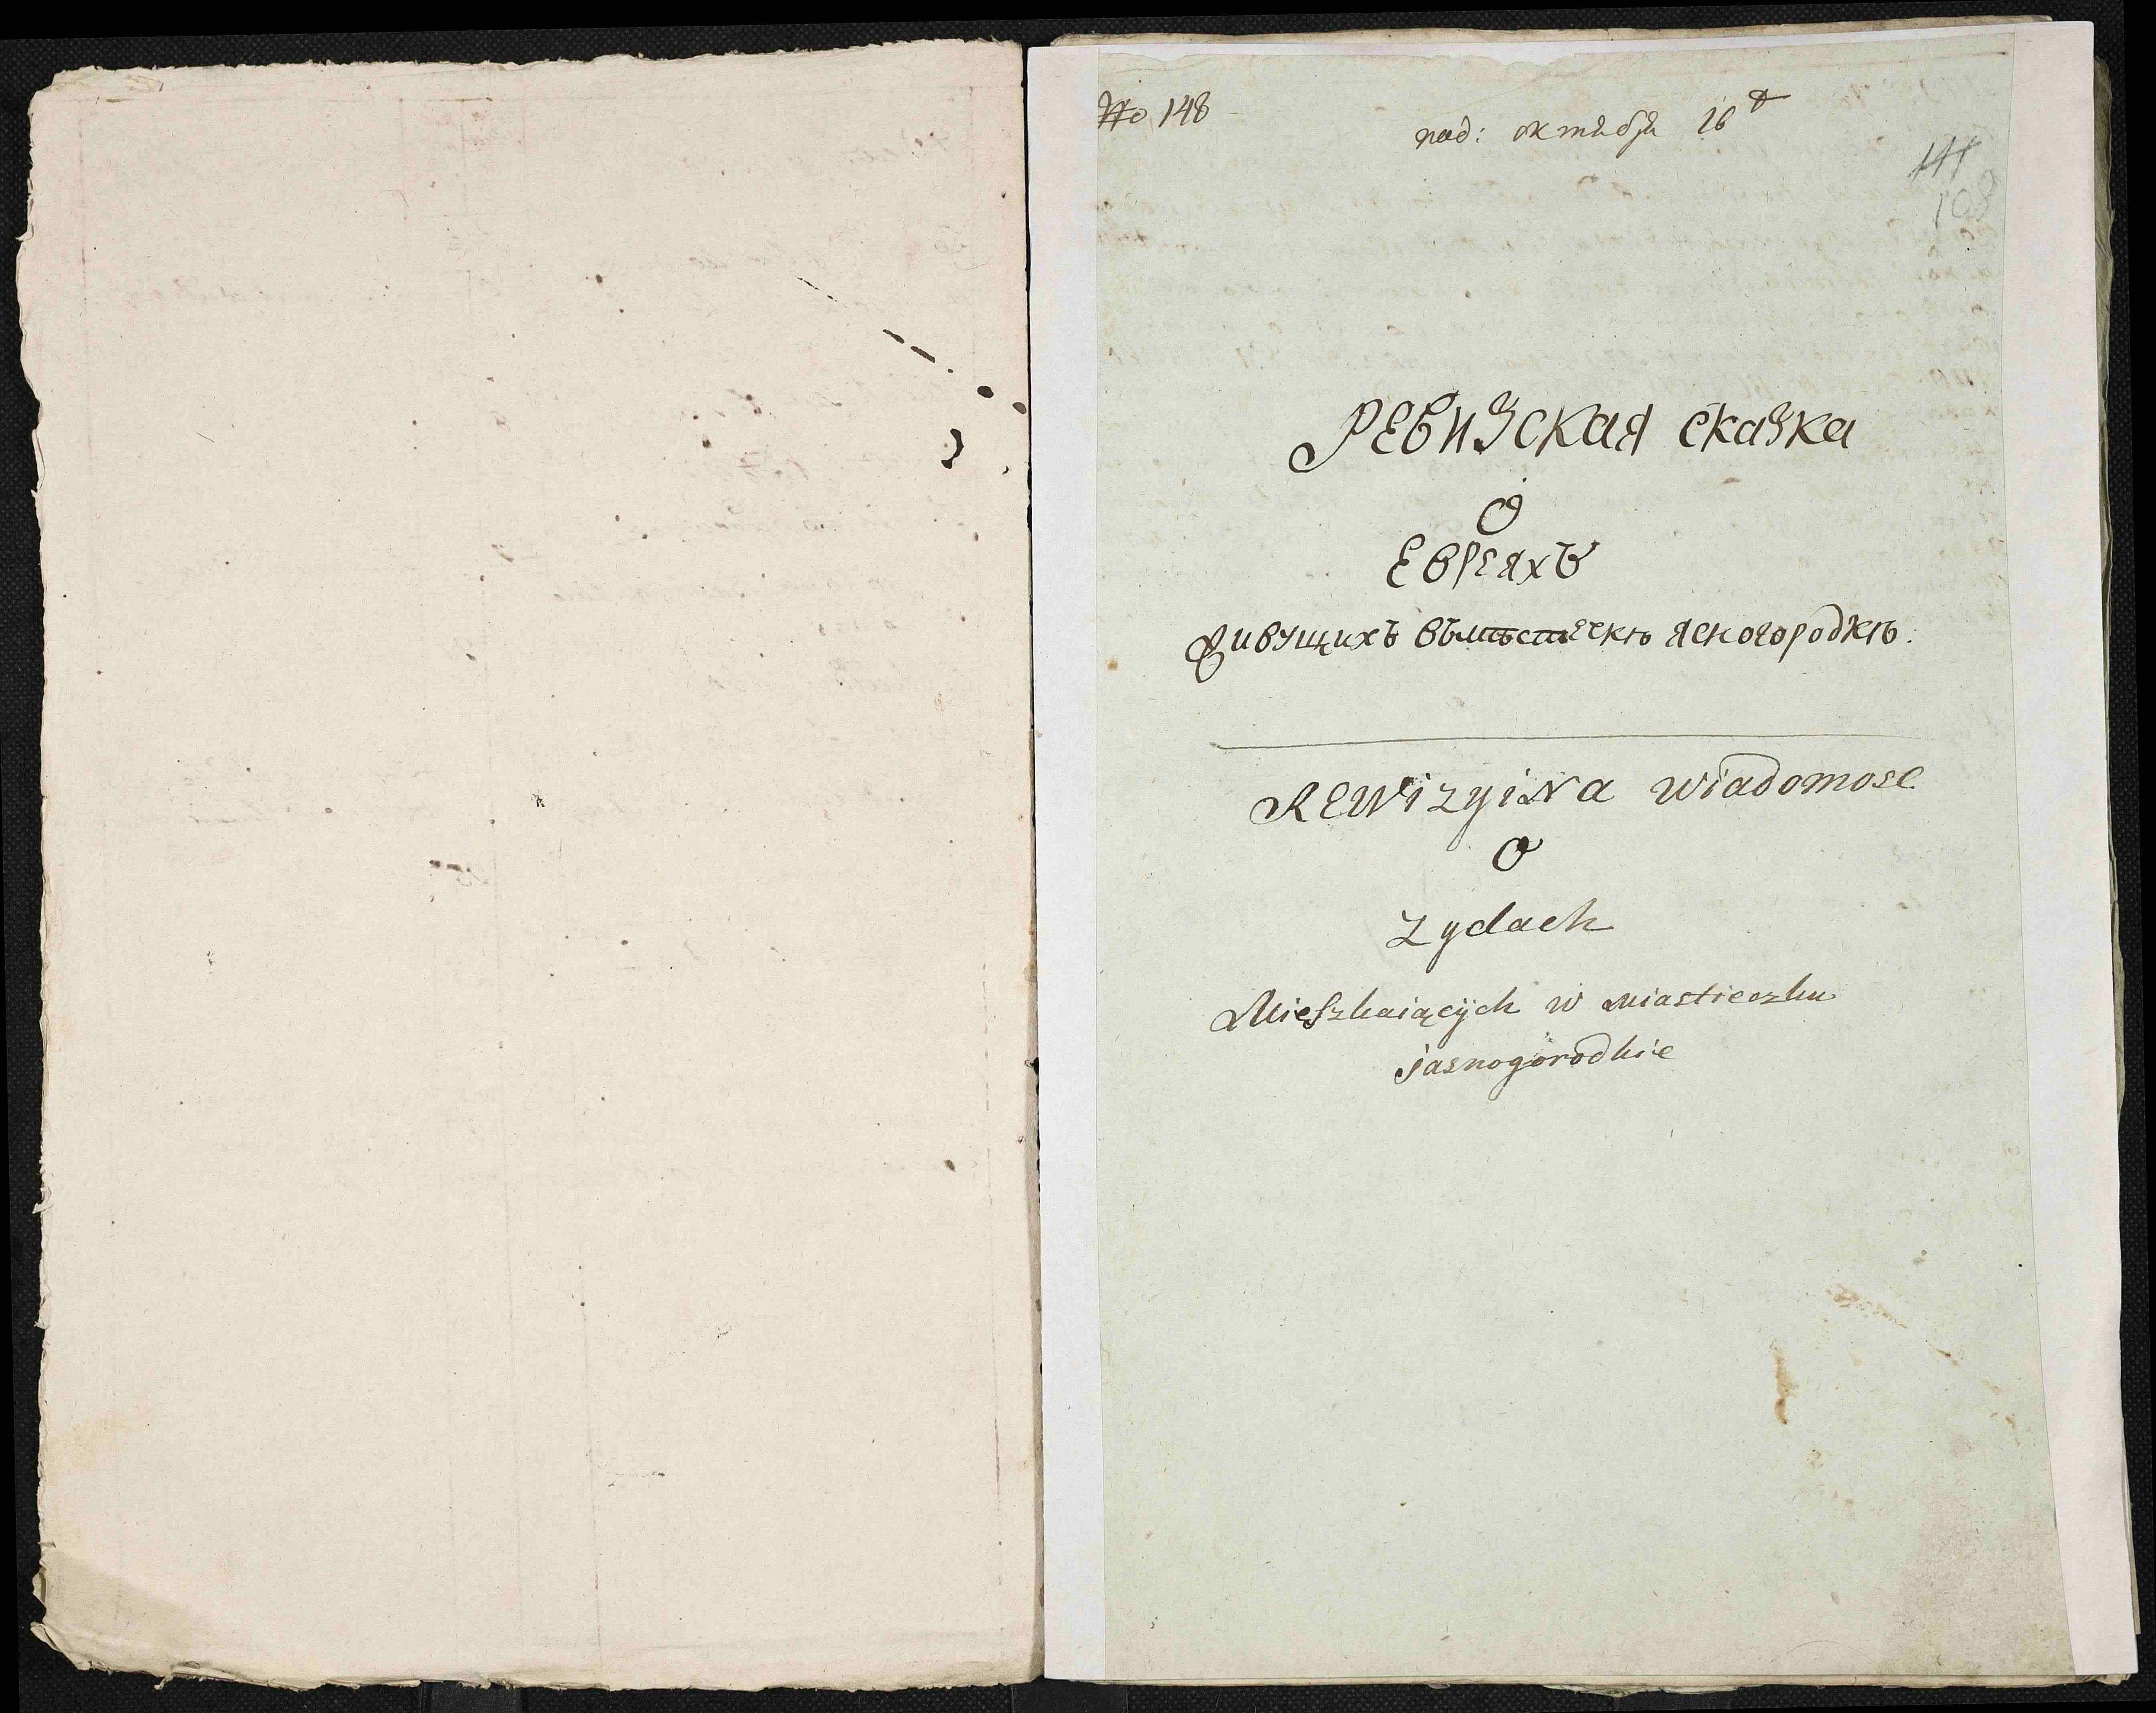 No 148
под: октября 16 д
111
108
Ревизская сказка
О
Евреахъ
Живущихъ въместечкѣ Ясногородкѣ.
Rewizyina wiadomosc
O
Zydach
Mieszkaiących w miastieczku
jasnogorodkie